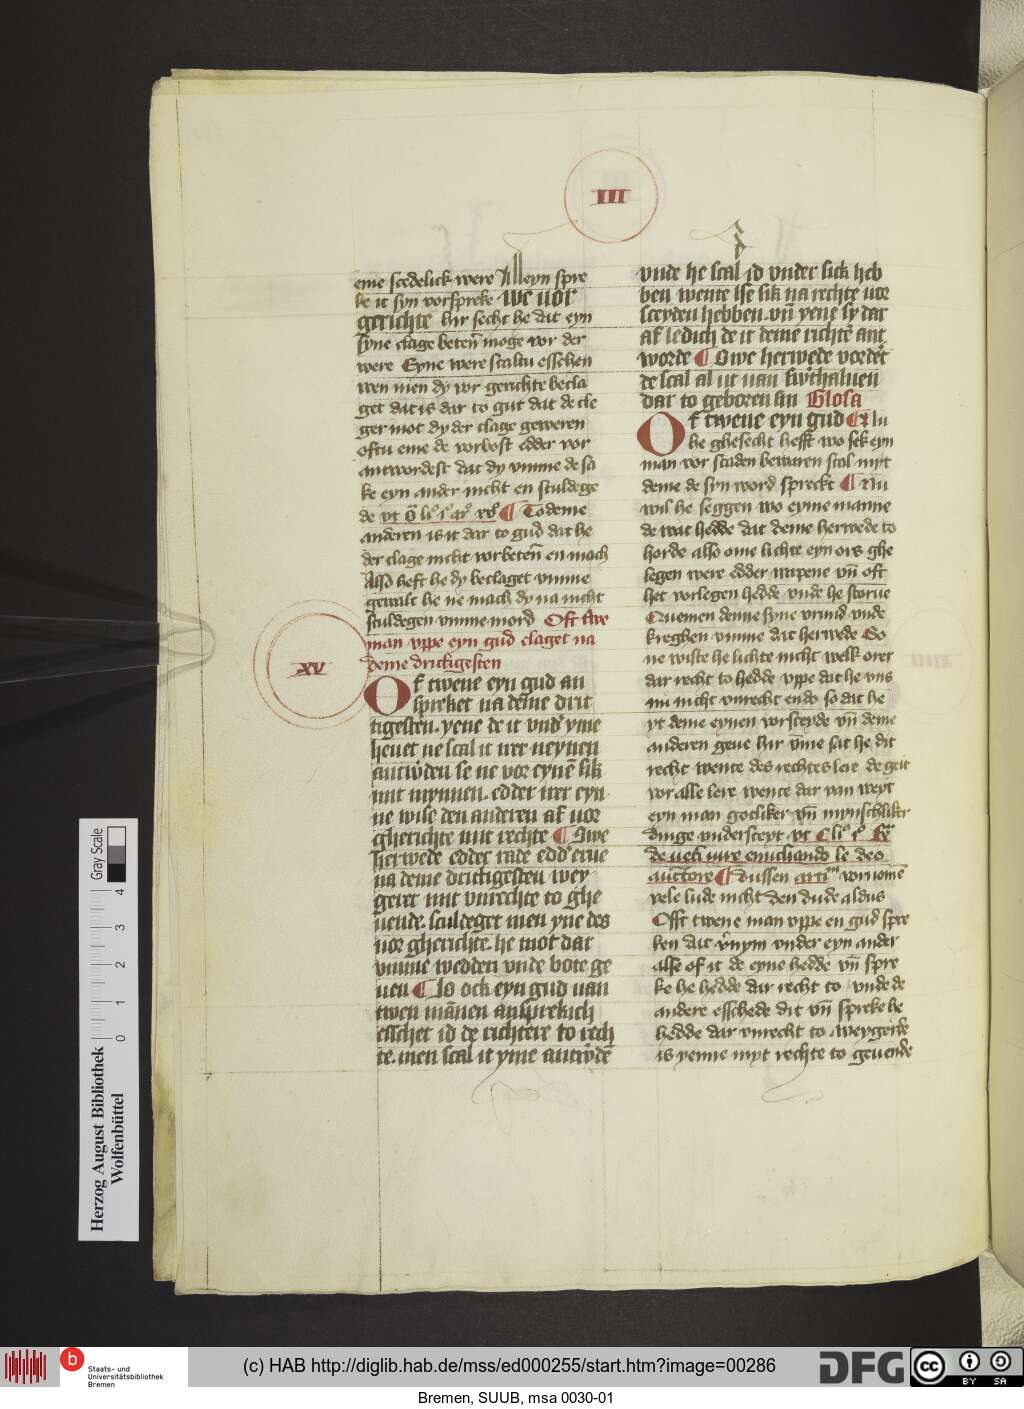 III
eme scedelick were Alleyn spre
ke it syn vorspreke we vor
gerichte hir secht he dat eyn
syne clage beten moge vor der
were Eyne were scaltu esschen
wen men dy vor gerichte becla
get dat is dar to gut dat de cle
ger mot dy der clage geweren
oftu eme de vorbost edder vor
antwordest dat dy vmme de sa
ke eyn ander nicht en sculdege
de vt
¶ To deme
anderen is it dar to gud dat he
der clage nicht vorbeteren mach
Also heft he dy beclaget vmme
gewalt he ne mach dy na nicht
sculdegen vmme mord Oft twe
man vppe eyn gud claget na
deme drickigesten
XV
Of twene eyn gud an
spreket na deme drit
tigesten. yene de it vnd yme
heuet ne scal it ner neynen
antwden se ne vor eyne sik
mit mynnen. edder ner eyn
ne wise den anderen af vor
gherichte mit rechte ¶ Swe
herwede edder rade edd erue
na deme drickigesten wey
geret mit vnrechte to ghe
uende. sculdeget men yne des
vor gherichte. he mot dar
vmme wedden vnde bote ge
uen ¶ Is ock eyn gud van
twen mannen ansprekich
esschet id de richtere to rech
te. men scal it yme antwde
vnde he scal id vnder sick heb
ben wente sse sik na rechte vor
sceyden hebben. vn yene sy dar
af ledich de it deme richter ant
worde ¶ Swe herwede vordert
de scal al ut van swthaluen
dar to geboren sin Glosa
Of twene eyn gud ¶ Nu
he ghesecht hefft wo sek eyn
man vor scaden bewaren scal myt
deme de syn word spreckt ¶ Nu
wil he seggen wo eyme manne
de wat hedde dat deme herwede to
horde also ome lichte eyn ors ghe
legen were edder wapene vn oft
het vorlegen hedde vnde he storue
Quemen denne syne vrund vnde
kreghen vmme dat herwede So
ne wiste he lichte nicht welk orer
dar recht to hedde vppe dat he vns
nu nicht vnrecht endo so dat he
yt deme eynen vorscyde vn deme
anderen geue hir vme sat he dit
recht wente des rechtes lere de geit
vor alle lere wente dar van weyt
eyn man gotliker vn mynschliker
dinge vndersceyt vt
de ueti iure enucliando le deo
auctore ¶ Dussen vornome
vele lude nicht den dude aldus
Offt twene man vppe en gud spre
ken dat vnym vnder eyn ander
alse of it de eyne hedde vn spre
ke he hedde dar recht to vnde de
andere esschede dit vn spreke he
hedde dar vnrecht to weygerde
is yenne myt rechte to geuende
Gray Scale
0 1 2 3 4
Herzog August Bibliothek
Wolfenbüttel
b
Staats- und
Universitätsbibliothek
Bremen
(c) HAB http://diglib.hab.de/mss/ed000255/start.htm?image=00286
DFG
cc BY SA
Bremen, SUUB, msa 0030-01